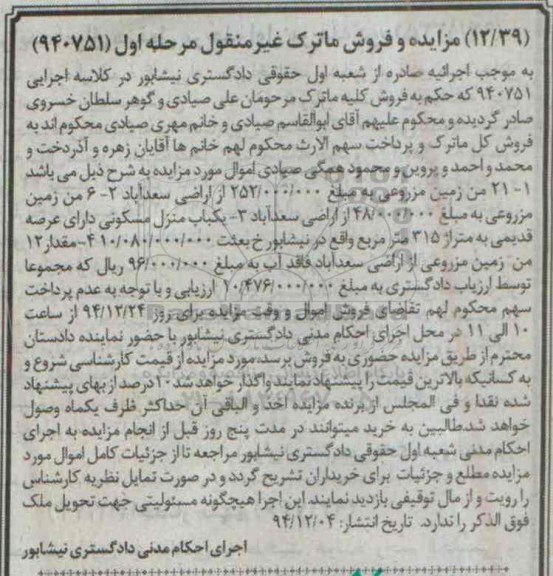 (۱۲/۳۹) مزایده و فروش ماترک غیرمنقول مرحله اول (۹۴۰۷۵۱)
به موجب اجرائیه صادره از شعبه اول حقوقی دادگستری نیشابور در کلاسه اجرایی
۹۴۰۷۵۱ که حکم به فروش کلیه ماترک مرحومان علی صیادی و گوهر سلطان خسروی
صادر گردیده و محکوم علیهم آقای ابوالقاسم صیادی و خانم مهری صیادی محکوم اند به
فروش کل ماترک و پرداخت سهم الارث محکوم لهم خانم ها آقایان زهره و آذردخت و
محمد و احمد و پروین و محمود همگی صیادی اموال مورد مزایده به شرح ذیل می باشد
۱- ۲۱ من زمین مزروعی به مبلغ ۲۵۲/۰۰۰/۰۰۰ از اراضی سعدآباد ۲- ۶ من زمین
مزروعی به مبلغ ۴۸/۰۰۰/۰۰۰ از اراضی سعدآباد ۳- یکباب منزل مسکونی دارای عرصه
قدیمی به متراژ ۳۱۵ متر مربع واقع در نیشابور خ بعثت ۱۰/۰۸۰/۰۰۰/۰۰۰ ۴- مقدار ۱۲
من زمین مزروعی از اراضی سعدآباد فاقد آب به مبلغ ۹۶/۰۰۰/۰۰۰ ریال که مجموعا
توسط ارزیاب دادگستری به مبلغ ۱۰/۴۷۶/۰۰۰/۰۰۰ ارزیابی و با توجه به عدم پرداخت
سهم محکوم لهم تقاضای فروش اموال و وقت مزایده برای روز ۹۴/۱۲/۲۴ از ساعت
۱۰ الی ۱۱ در محل اجرای احکام مدنی دادگستری نیشابور با حضور نماینده دادستان
محترم از طریق مزایده حضوری به فروش برسد، مورد مزایده از قیمت کارشناسی شروع و
به کسانیکه بالاترین قیمت را پیشنهاد نمایند واگذار خواهد شد ۱۰ درصد از بهای پیشنهاد
شده نقدا و فی المجلس از برنده مزایده اخذ و الباقی آن حداکثر ظرف یکماه وصول
خواهد شد. طالبین به خرید میتوانند در مدت پنج روز قبل از انجام مزایده به اجرای
احکام مدنی شعبه اول حقوقی دادگستری نیشابور مراجعه تا از جزئیات کامل اموال مورد
مزایده مطلع و جزئیات برای خریداران تشریح گردد و در صورت تمایل نظریه کارشناس
را رویت و از مال توقیفی بازدید نمایند. این اجرا هیچگونه مسئولیتی جهت تحویل ملک
فوق الذکر را ندارد. تاریخ انتشار: ۹۴/۱۲/۰۴
اجرای احکام مدنی دادگستری نیشابور